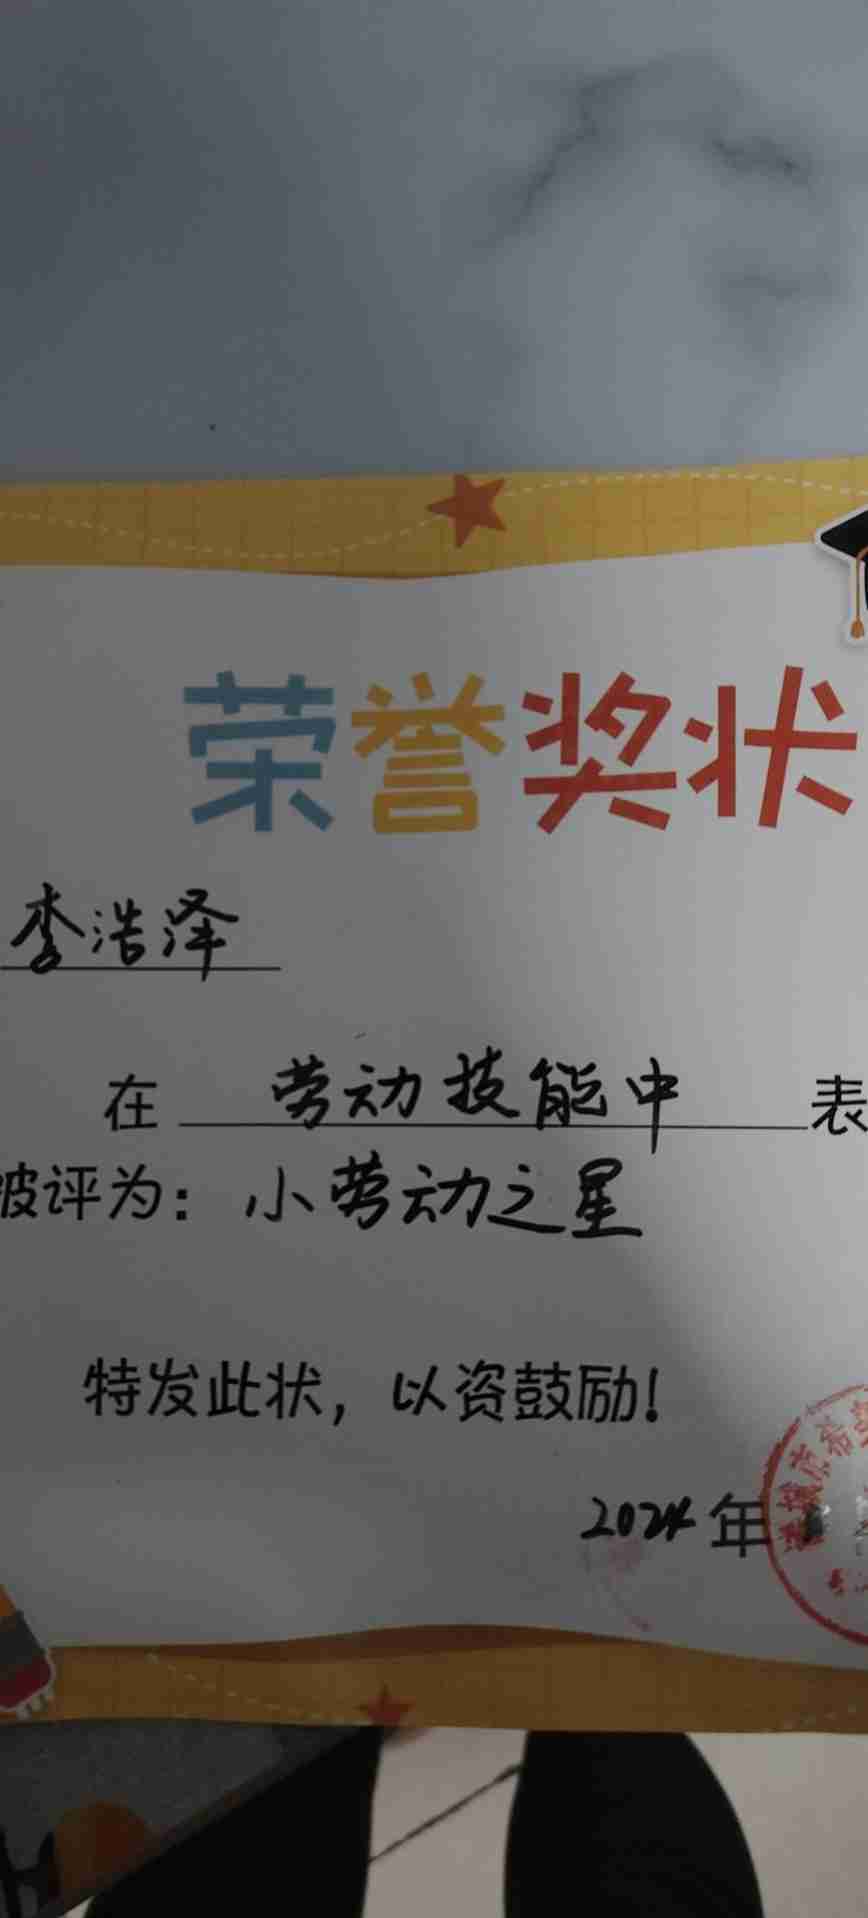 荣誉奖状
李浩泽
在 劳动技能中 表
被评为：小劳动之星
特发此状，以资鼓励！
2024年